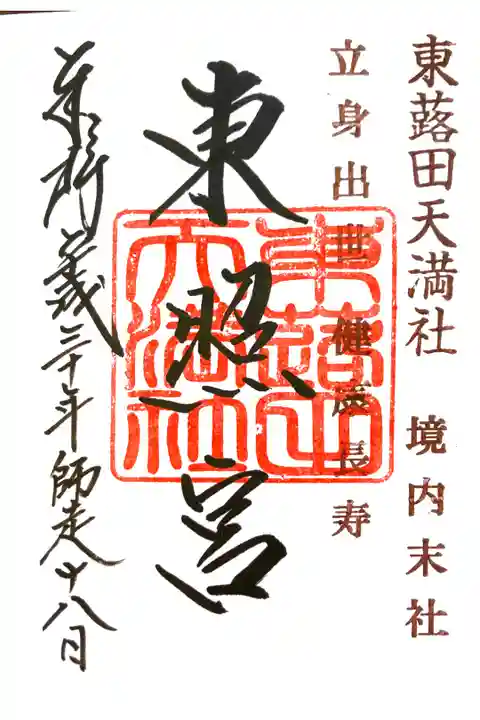 東蕗田天満社 境内末社
立身出世 健康長寿
東照宮
東蕗田天満社
奉拝 平成三十年師走十八日